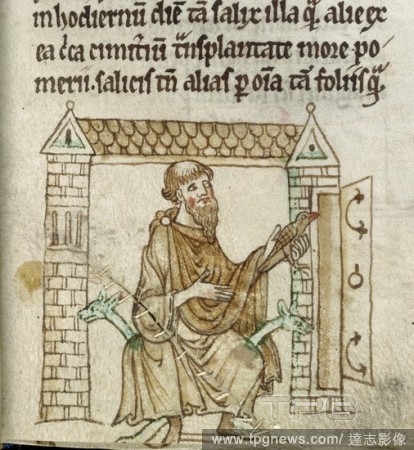 inhodiernū diē tā salix illa q̄ alie ex
ea c̄ca cimit̄iū t̄nsplantate more po-
merii. salicis tn̄ alias ꝑ oīa tā foliisq̄
TPG
www.tpgnews.com/ 達志影像